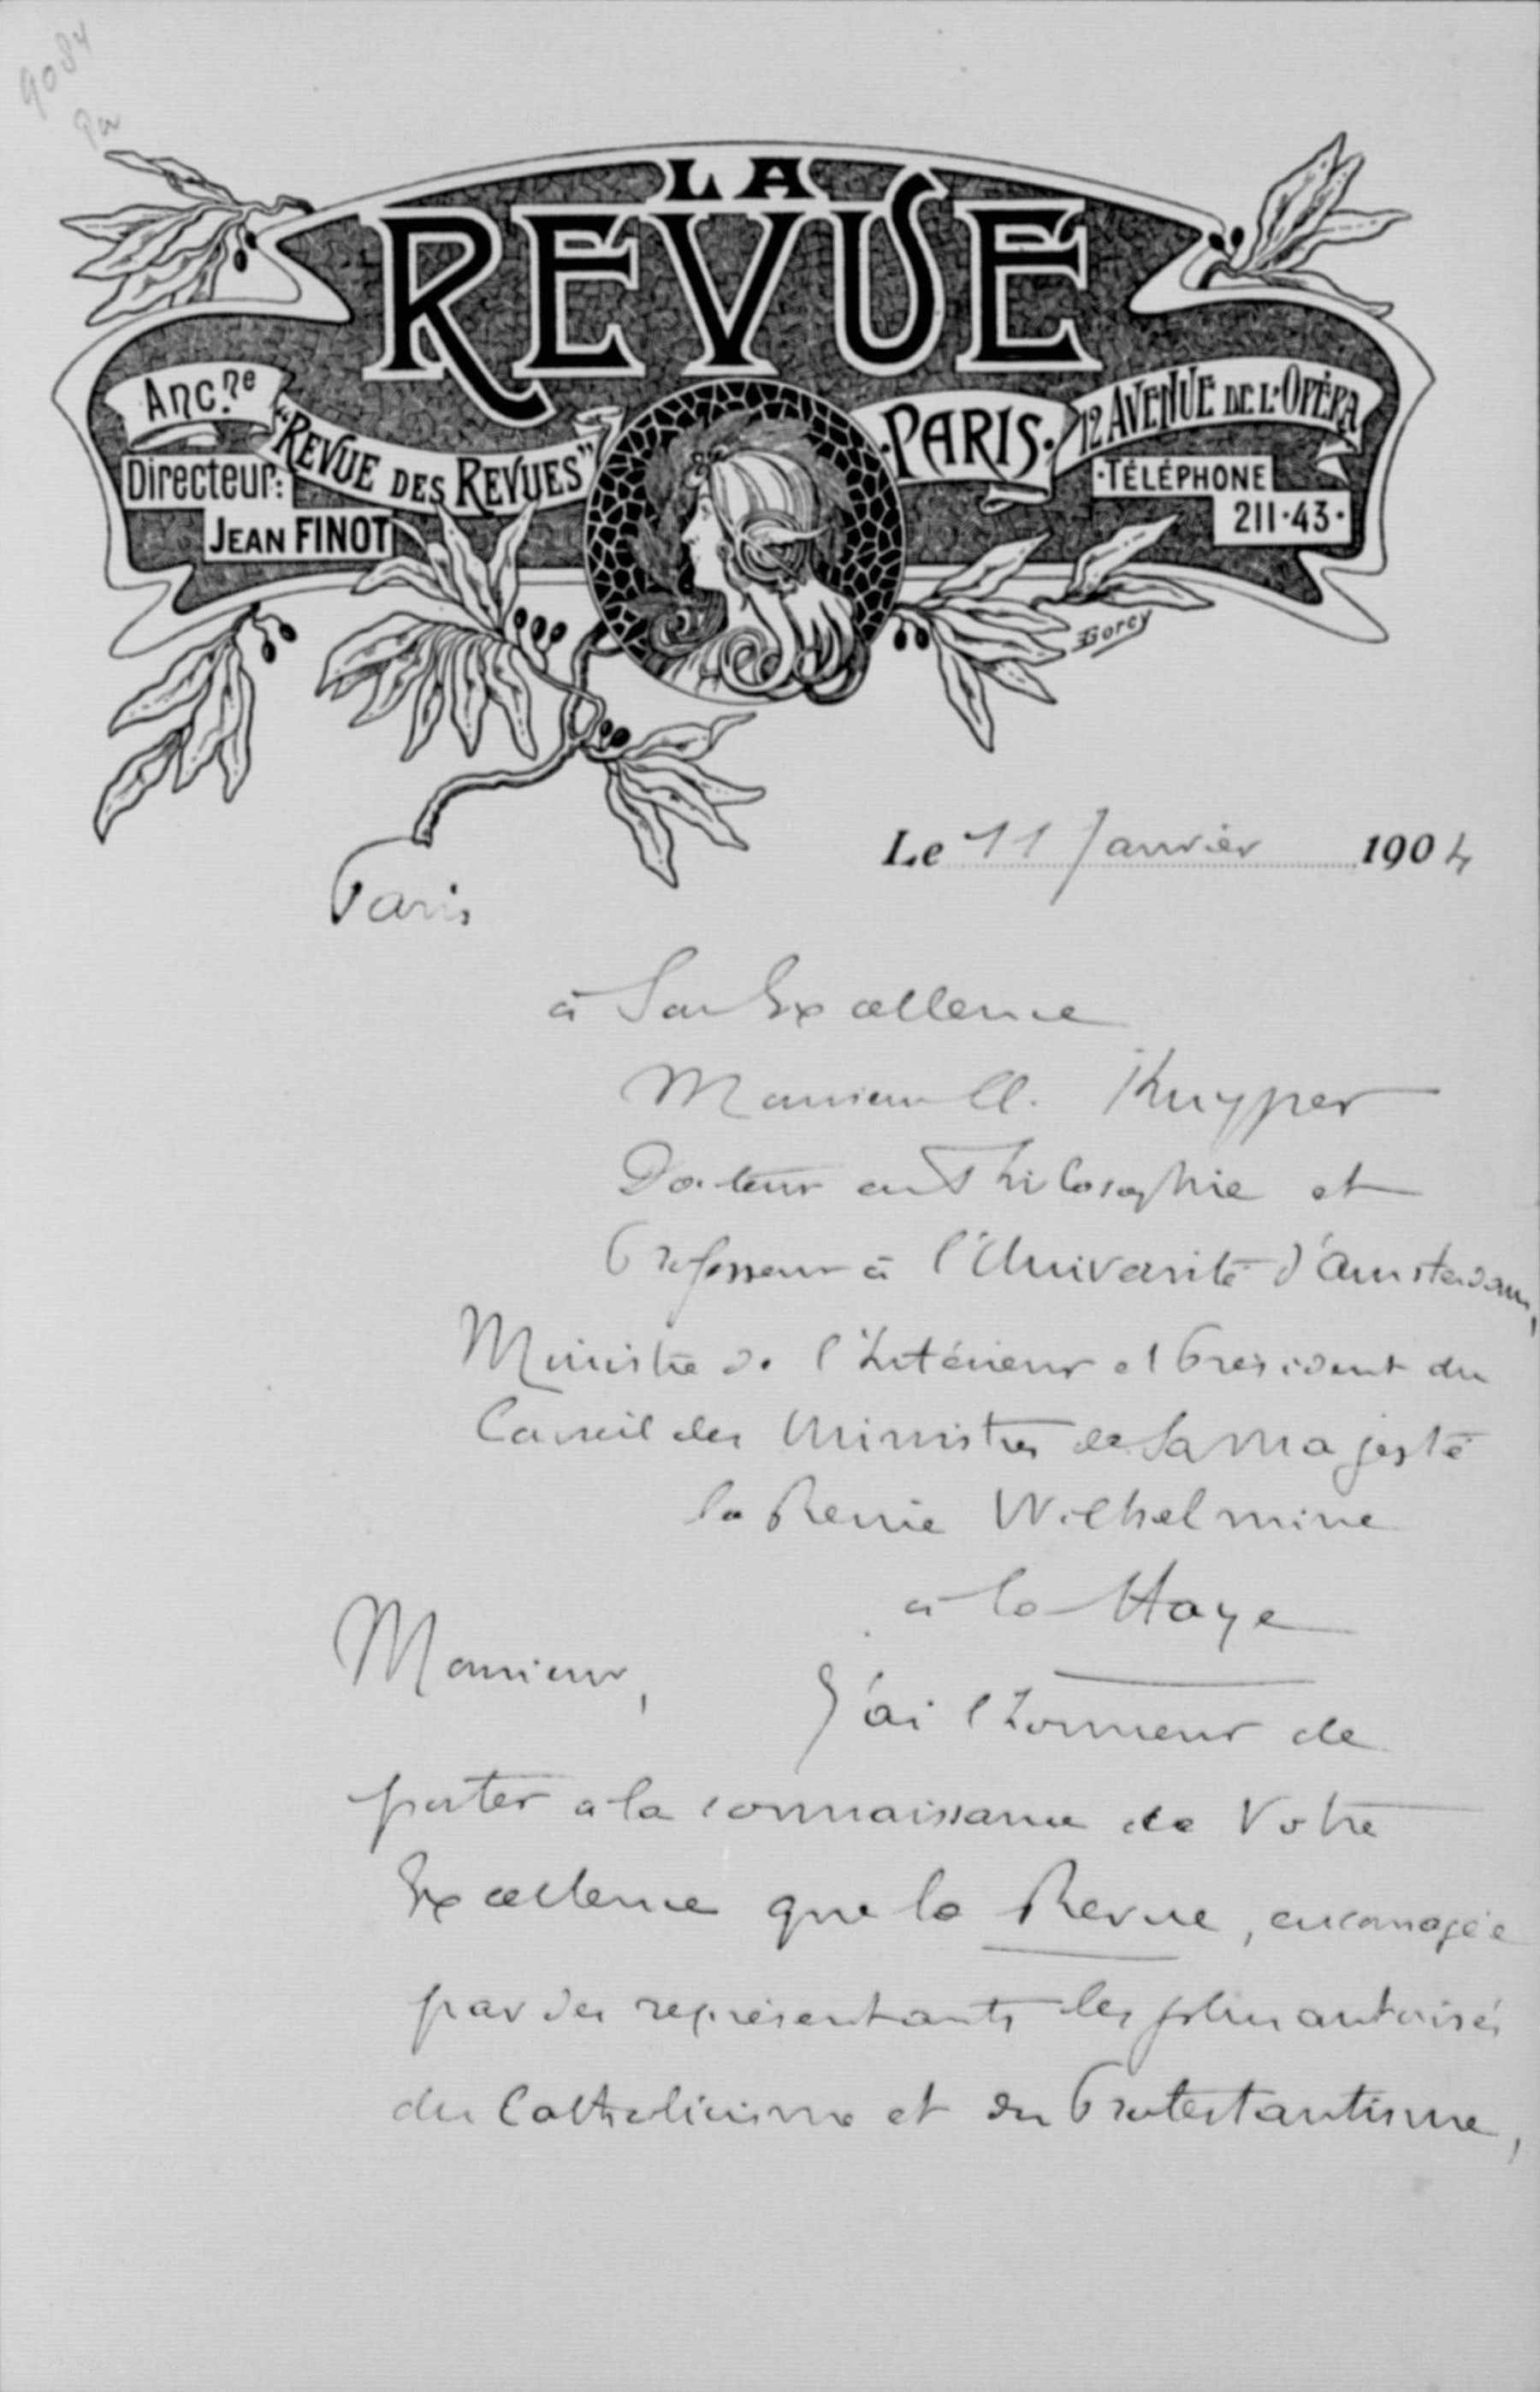 9084
LA
REVUE
Anc.ne
"REVUE DES REVUES"
Directeur:
JEAN FINOT
·PARIS·
12 AVENUE DE L'OPÉRA
·TÉLÉPHONE
211·43·
Gorey
Le 11 Janvier 1904
Paris
à Son Excellence
Monsieur A. Kuyper
Docteur en Philosophie et
Professeur à l'Université d'Amsterdam,
Ministre de l'Intérieur et Président du
Conseil des Ministres de Sa Majesté
la Reine Wilhelmine
à la Haye
Monsieur,
J'ai l'honneur de
porter a la connaissance de Votre
Excellence que la Revue, encouragée
par des représentants les plus autorisés
du Catholicisme et du Protestantisme,